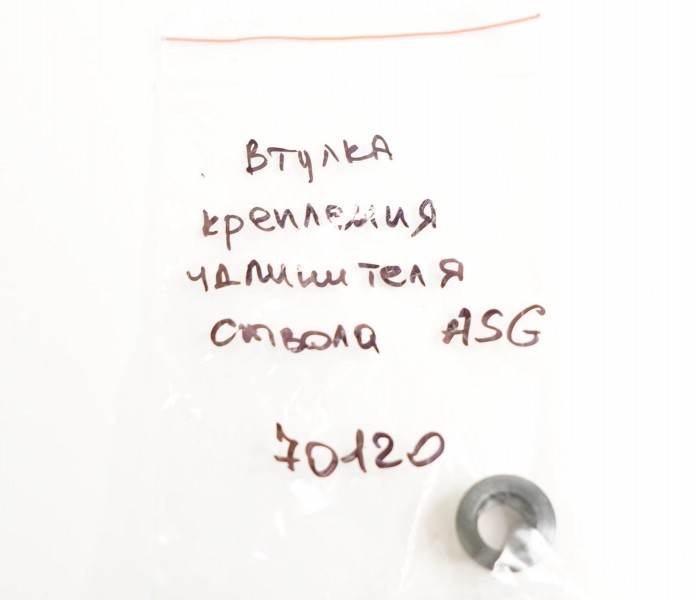 втулка
крепления
удлинителя
ствола ASG
70120